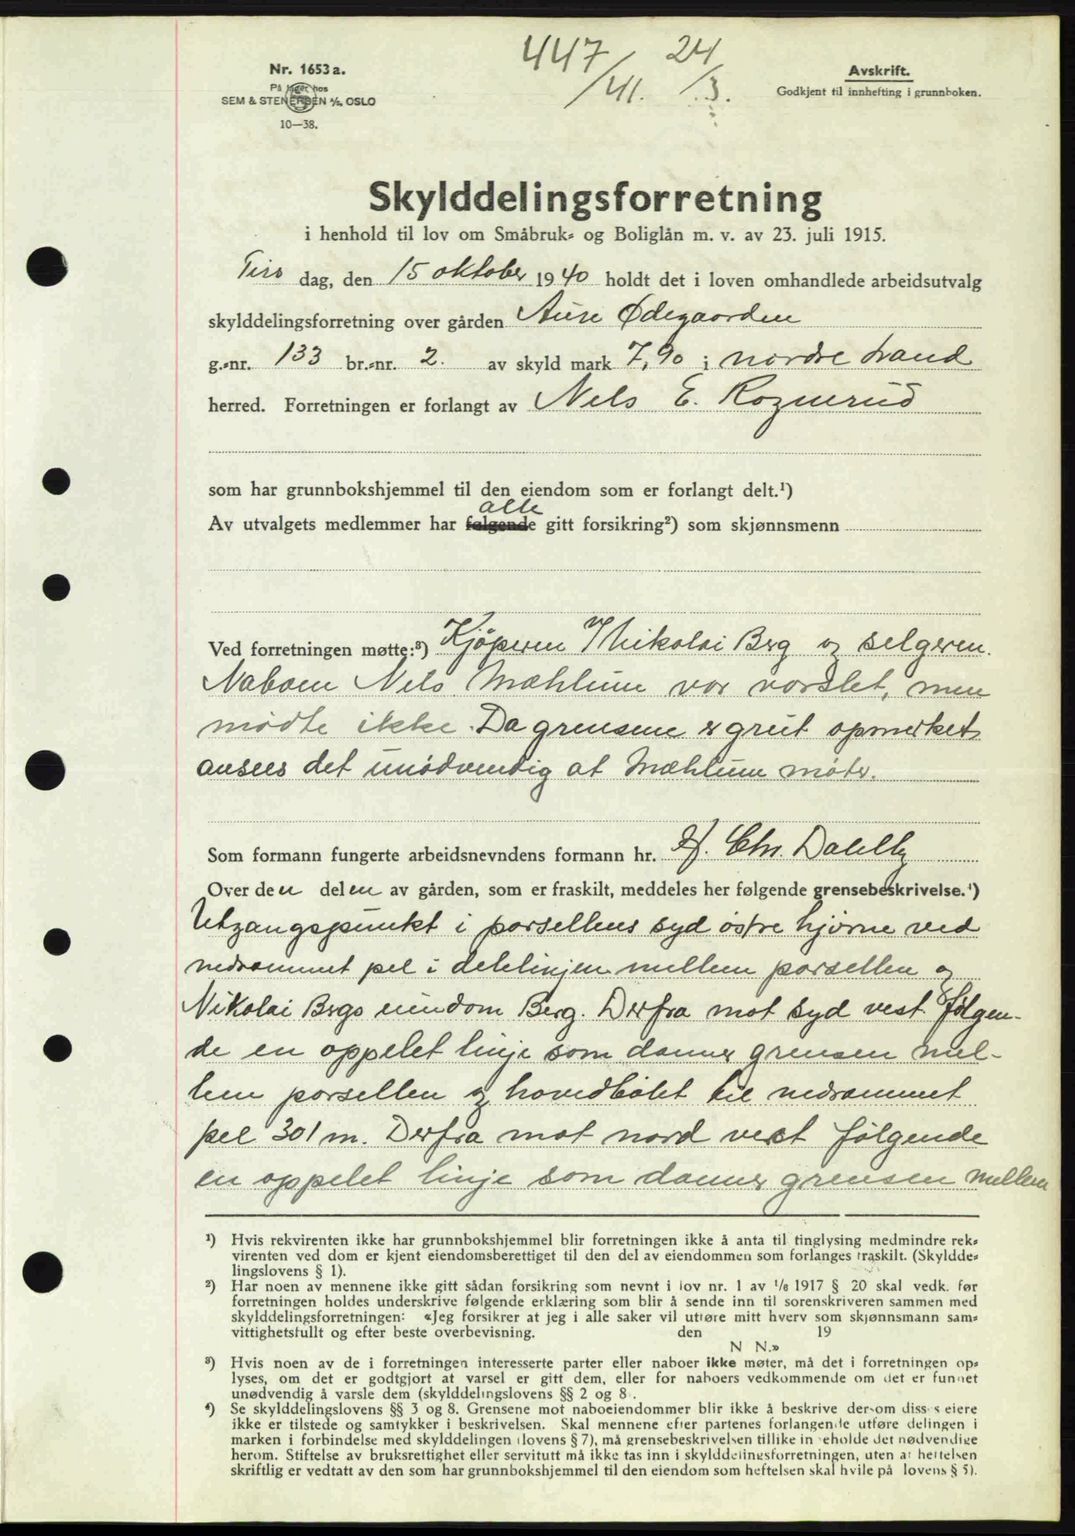 447/41. 24/3.
Nr. 1653 a.
På lager hos
SEM & STENERSEN A/S, OSLO
10—38.
Avskrift.
Godkjent til innhefting i grunnboken.
Skylddelingsforretning
i henhold til lov om Småbruk- og Boliglån m. v. av 23. juli 1915.
Tirs dag, den 15 oktober 1940 holdt det i loven omhandlede arbeidsutvalg
skylddelingsforretning over gården Aure Ødegaarden
g.-nr. 133 br.-nr. 2. av skyld mark 7,90 i nordre Land
herred. Forretningen er forlangt av Nels E. Rognerud
som har grunnbokshjemmel til den eiendom som er forlangt delt.¹)
alle
Av utvalgets medlemmer har følgende gitt forsikring²) som skjønnsmenn
Ved forretningen møtte:³) Kjøperen Nikolai Berg og selgeren.
Naboen Nels Mæhlum var varslet, men
mødte ikke. Da grensene er greit opmerket
ansees det unødvendig at Mæhlum møter.
Som formann fungerte arbeidsnevndens formann hr. H. Chr. Dahlby
Over den delen av gården, som er fraskilt, meddeles her følgende grensebeskrivelse.⁴)
Utgangspunkt i parsellens syd østre hjørne ved
nedrammet pel i delelinjen mellem parsellen og
Nikolai Bergs eiendom Berg. Derfra mot syd vest følgen-
de en oppelet linje som danner grensen mel-
lem parsellen og hovedbølet til nedrammet
pel 301 m. Derfra mot nord vest følgende
en oppelet linje som danner grensen mellem
¹) Hvis rekvirenten ikke har grunnbokshjemmel blir forretningen ikke å anta til tinglysing medmindre rek-
virenten ved dom er kjent eiendomsberettiget til den del av eiendommen som forlanges fraskilt. (Skyldde-
lingslovens § 1).
²) Har noen av mennene ikke gitt sådan forsikring som nevnt i lov nr. 1 av 1/6 1917 § 20 skal vedk. før
forretningen holdes underskrive følgende erklæring som blir å sende inn til sorenskriveren sammen med
skylddelingsforretningen: «Jeg forsikrer at jeg i alle saker vil utføre mitt hverv som skjønnsmann sam-
vittighetsfullt og efter beste overbevisning. den 19
N N.»
³) Hvis noen av de i forretningen interesserte parter eller naboer ikke møter, må det i forretningen op-
lyses, om det er godtgjort at varsel er gitt dem, eller for naboers vedkommende om det er funnet
unødvendig å varsle dem (skylddelingslovens §§ 2 og 8.
⁴) Se skylddelingslovens §§ 3 og 8. Grensene mot naboeiendommer blir ikke å beskrive dersom disses eiere
ikke er tilstede og samtykker i beskrivelsen. Skal mennene efter partenes forlangende utføre delingen i
marken i forbindelse med skylddelingen (lovens § 7), må grensebeskrivelsen tillike inneholde det nødvendige
herom. Stiftelse av bruksrettighet eller servitutt må ikke tas inn i skylddelingsforretningen, uten at heftelsen
skriftlig er vedtatt av den som har grunnbokshjemmel til den eiendom som heftelsen skal hvile på lovens § 5).